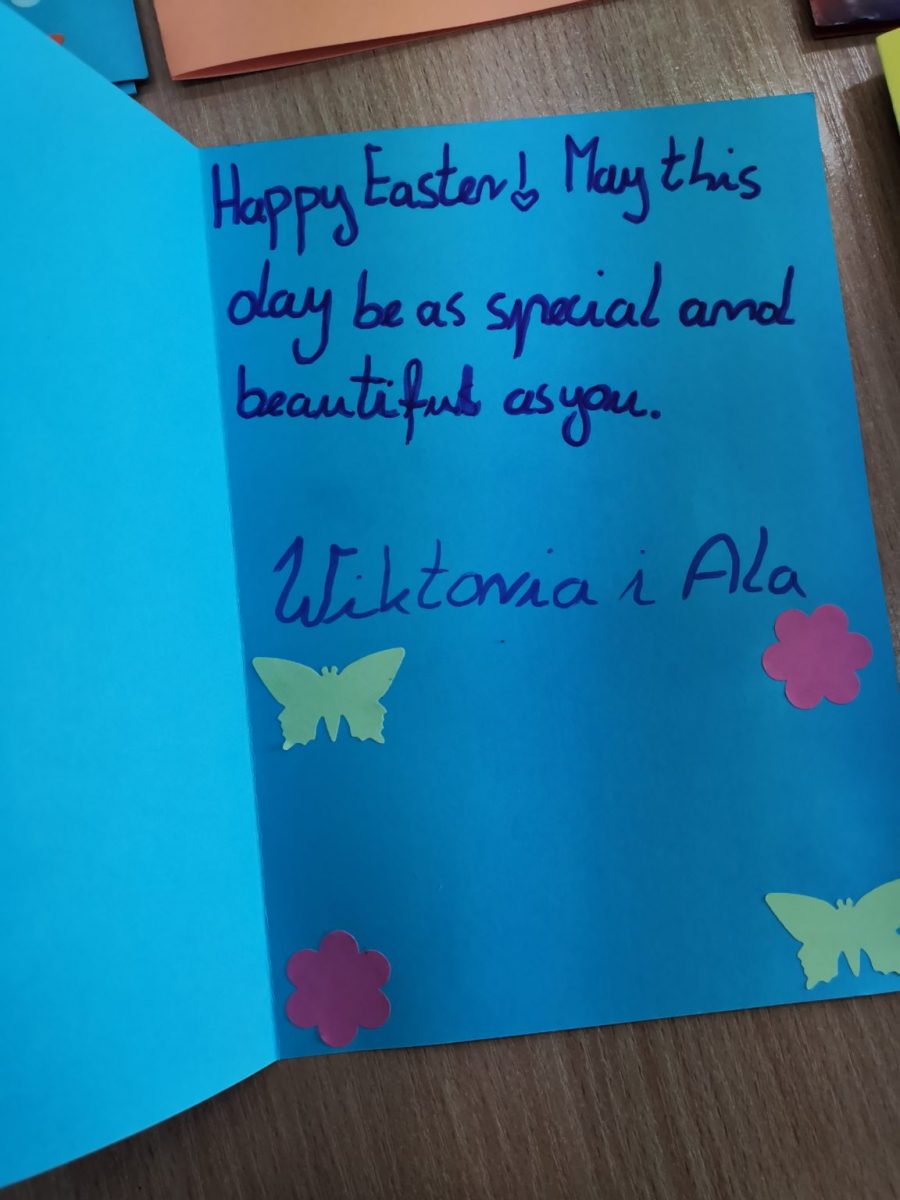 Happy Easter! May this
day be as special and
beautiful as you.
Wiktoria i Ala